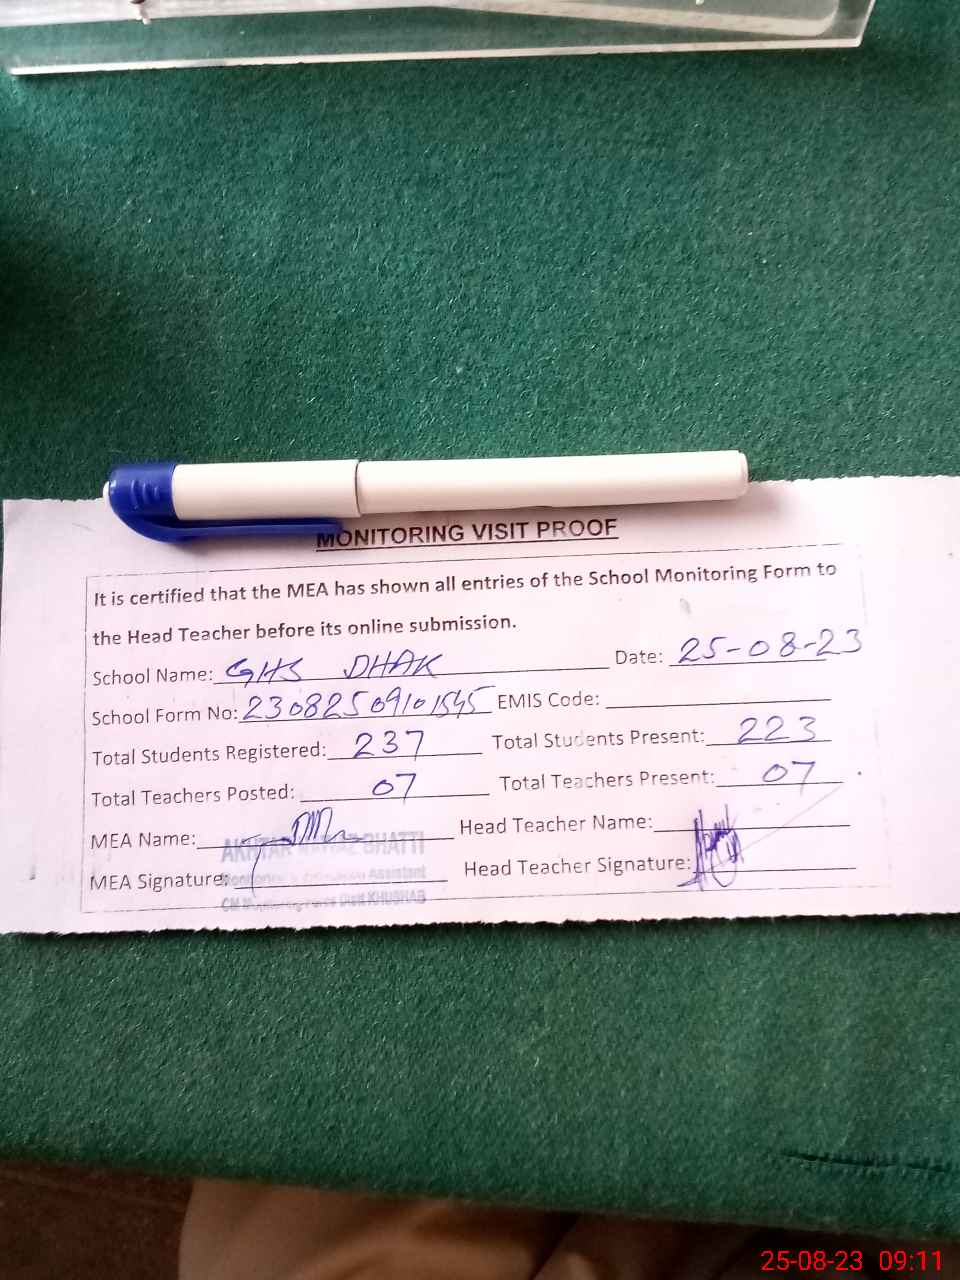 MONITORING VISIT PROOF
It is certified that the MEA has shown all entries of the School Monitoring Form to
the Head Teacher before its online submission.
School Name: GHS DHAK Date: 25-08-23
School Form No: 23082509101545 EMIS Code:
Total Students Registered: 237 Total Students Present: 223
Total Teachers Posted: 07 Total Teachers Present: 07
MEA Name: Head Teacher Name:
AKHTAR NAWAZ BHATTI
MEA Signature: Head Teacher Signature:
Monitoring & Assistant
CM Monitoring Force Distt KHUSHAB
25-08-23 09:11